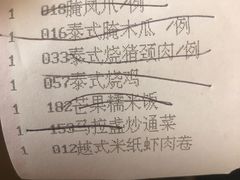 1 018腌凤爪/例
1 016泰式腌木瓜/例
1 033泰式烧猪颈肉/例
1 057泰式烧鸡
1 182芒果糯米饭
1 159马拉盏炒通菜
1 012越式米纸虾肉卷